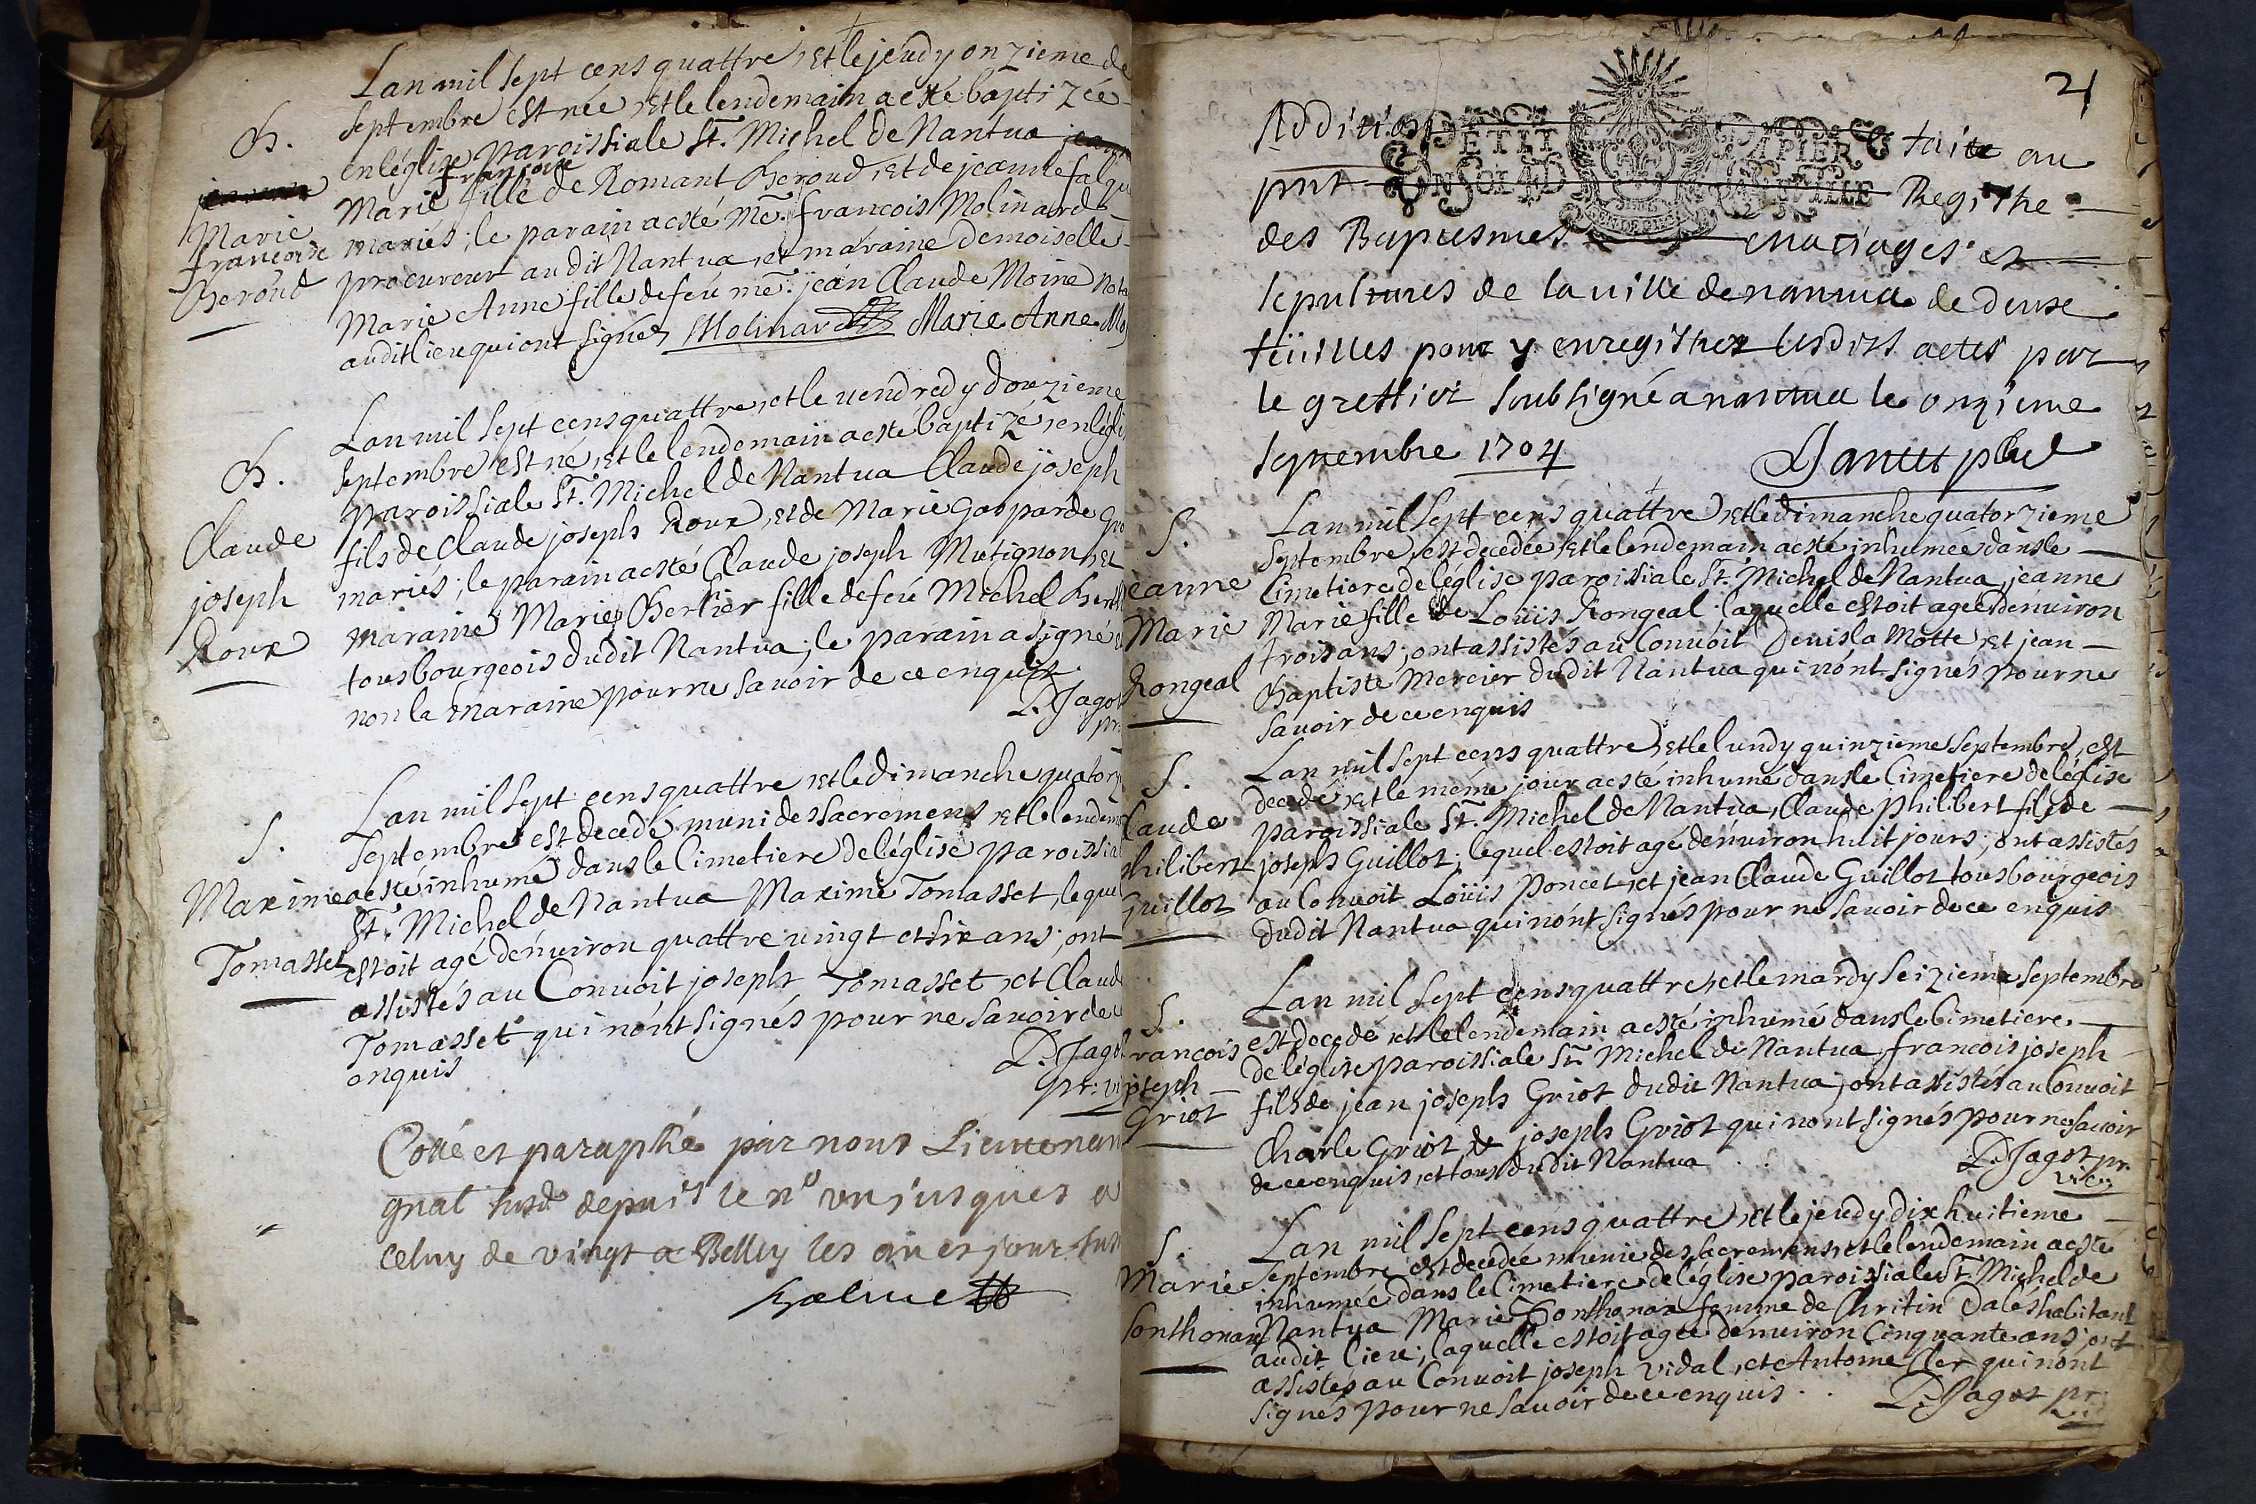 Lan mil sept cens quattre, et le jeudy onzieme de
septembre est née, et le lendemain a esté baptizée
en léglize paroissiale St. Michel de Nantua
françoise
Marie fille de Romant Beroud, et de jeanne falqu
mariés; le parain a esté Me. francois Molinard
procureur audit Nantua, et maraine demoiselle
Marie Anne fille de feü me. jean Claude Moine not
audit lieu qui ont signés Molinard Marie Anne Mo
B.
Marie
francoise
Beroud
Lan mil sept cens quattre, et le vendredy douzieme
septembre est né, et le lendemain a esté baptizé, en légli
paroissiale St. Michel de Nantua Claude joseph
fils de Claude joseph Roux, et de Marie Gasparde Gro
mariés; le parain a esté Claude joseph Mutignon, et
maraine Marie Berthier fille de feü Michel Berth
tous bourgeois dudit Nantua; le parain a signé
non la maraine pour ne savoir de ce enquis.
D. Jagot
pr.
B.
Claude
joseph
Roux
Lan mil sept cens quattre et le dimanche quatorz
septembre est decedé muni des sacremens et le lendem
a esté inhumé dans le Cimetiere de léglise paroissia
St. Michel de Nantua Maxime Tomasset, lequel
estoit agé dénuiron quattre uingt et six ans; ont
assistés au Conuoit joseph Tomasset, et Claude
Tomasset qui nónt signés pour ne sauoir de c
enquis
D. Jagot
pr. vi
S.
Maxime
Tomasset
Cotté et paraphé par nous Lieutenan
gnal susd depuis le no un jusques a
celuy de vingt a Belley les an et jour sus
21
PETIT PAPIER
Addition faite au
pnt Registre
des Baptismes mariages et
sepultures de la uille de nantua de deuse
feüilles pour y enregistrer lesdits actes par
le greffier soubsigné a nantua le onzieme
septembre 1704
S.
jeanne
Marie
Rongeal
Lan mil sept cens quattre, et le dimanche quatorzieme
septembre, est decedée, et le lendemain a esté inhumée dans le
Cimetiere de léglise paroissiale St. Michel de Nantua, jeanne
Marie fille de Loüis Rongeal; laquelle estoit agée dénuiron
trois ans; ont assistés au Conuoit Denis la Motte, et jean
Baptiste Mercier dudit Nantua qui nónt signés pour ne
sauoir de ce enquis
S.
Claude
philibert
Guillot
Lan mil sept cens quattre, et le lundy quinzieme septembre, est
decedé, et le méme jour a esté inhumé dans le Cimetiere de léglise
paroissiale St. Michel de Nantua, Claude philibert fils de
joseph Guillot; lequel estoit agé dénuiron huit jours; ont assistés
au Conuoit Loüis poncet, et jean Claude Guillot tous bourgeois
dudit Nantua qui nónt signés pour ne sauoir de ce enquis
S.
francois
joseph
Griot
Lan mil sept cens quattre, et le mardy seizieme septembre
est decedé et le lendemain a esté inhumé dans le Cimetiere
de léglise paroissiale St. Michel de Nantua, francois joseph
fils de jean joseph Griot dudit Nantua; ont assistés au Conuoit
Charle Griot, & joseph Griot qui nont signés pour ne sauoir
de ce enquis, et tous dudit Nantua
D. Jagot pr.
vic.
S.
Marie
Sonthonax
Lan mil sept cens quattre, et le jeudy dix huitieme
septembre est decedée munie des sacremens, et le lendemain a esté
inhumée dans le Cimetiere de léglise paroissiale St. Michel de
Nantua Marie Sonthonax femme de Christin Dalés habitant
audit lieu; laquelle estoit agée dénuiron Cinquante ans; ont
assistés au Conuoit joseph Vidal, et Antoine Cler qui nónt
signés pour ne sauoir de ce enquis.
D. Jagot pr.